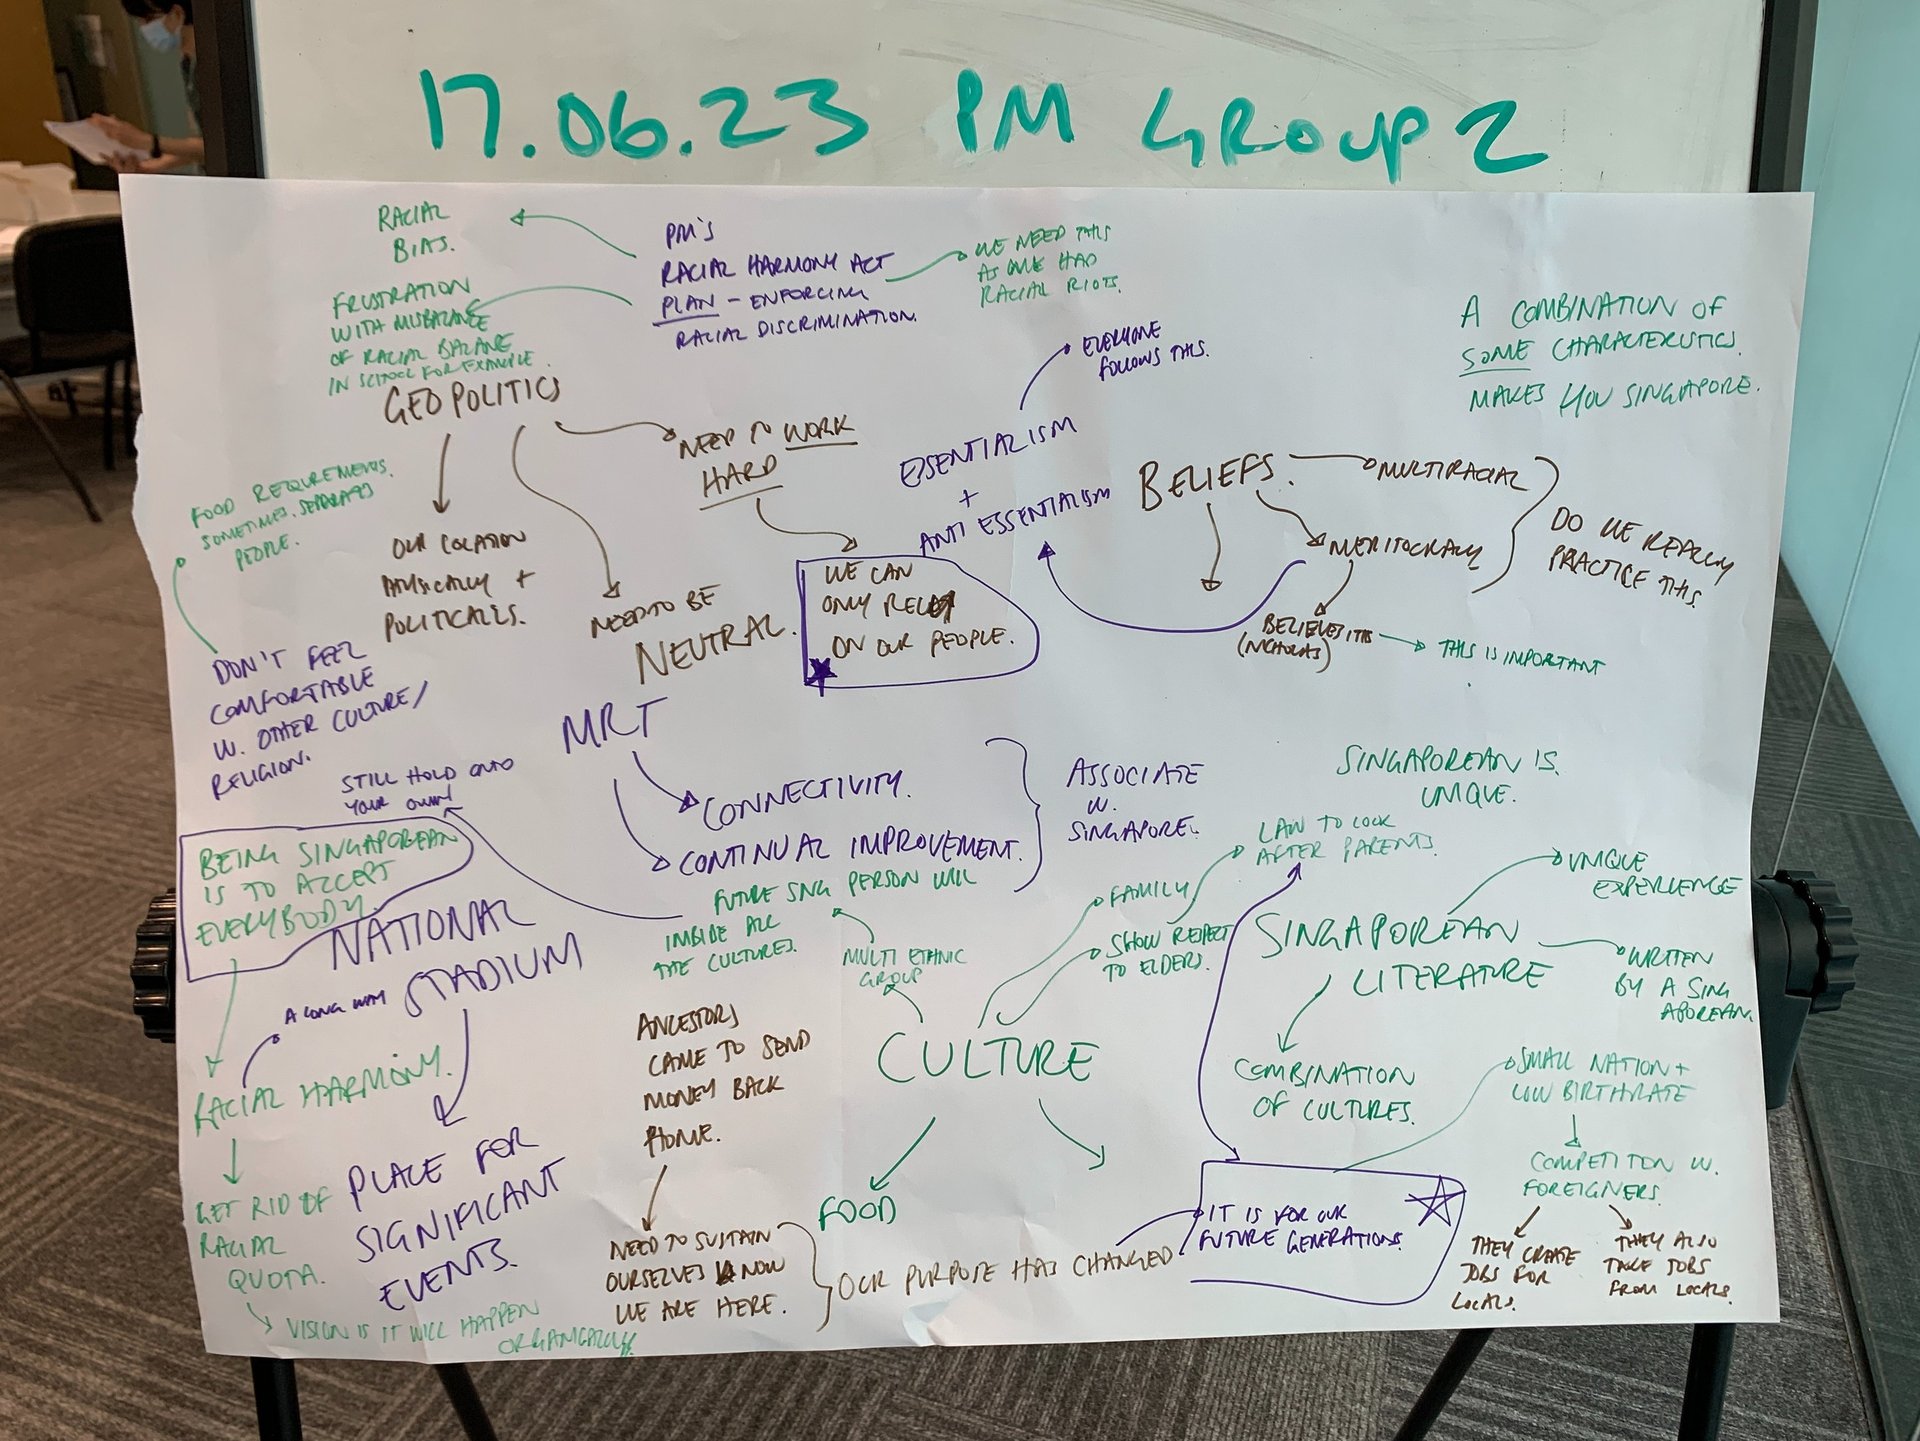 17.06.23 PM GROUP 2
RACIAL
BIAS.
PM'S
RACIAL HARMONY ACT
PLAN - ENFORCING
RACIAL DISCRIMINATION.
WE NEED THIS
AS WE HAD
RACIAL RIOTS.
FRUSTRATION
WITH MISBALANCE
OF RACIAL BALANCE
IN SCHOOL FOR EXAMPLE.
A COMBINATION OF
SOME CHARACTERISTICS
MAKES YOU SINGAPORE.
EVERYONE
FOLLOWS THIS.
GEOPOLITICS
NEED TO WORK
HARD
ESSENTIALISM
+
ANTI ESSENTIALISM
BELIEFS.
MULTIRACIAL
MERITOCRACY
DO WE REALLY
PRACTICE THIS.
BELIEVES IT
(NICHOLAS)
THIS IS IMPORTANT
FOOD REQUIREMENTS
SOMETIMES SEPARATES
PEOPLE.
OUR LOCATION
PHYSICALLY +
POLITICALLY.
NEED TO BE
NEUTRAL.
WE CAN
ONLY RELY
ON OUR PEOPLE.
DON'T FEEL
COMFORTABLE
W. OTHER CULTURE/
RELIGION.
MRT
CONNECTIVITY.
CONTINUAL IMPROVEMENT.
ASSOCIATE
W.
SINGAPORE.
SINGAPOREAN IS
UNIQUE.
STILL HOLD ONTO
YOUR OWN
BEING SINGAPOREAN
IS TO ACCEPT
EVERYBODY.
NATIONAL
STADIUM
A LONG WAY
FUTURE SNG PERSON WILL
IMBIBE ALL
THE CULTURES.
MULTI ETHNIC
GROUP
FAMILY
SHOW RESPECT
TO ELDERS.
LAW TO LOOK
AFTER PARENTS.
SINGAPOREAN
LITERATURE
UNIQUE
EXPERIENCE
WRITTEN
BY A SING
APOREAN.
COMBINATION
OF CULTURES.
RACIAL HARMONY.
ANCESTORS
CAME TO SEND
MONEY BACK
HOME.
CULTURE
SMALL NATION +
LOW BIRTHRATE
COMPETITON W.
FOREIGNERS
THEY CREATE
JOBS FOR
LOCALS.
THEY ALSO
TAKE JOBS
FROM LOCALS.
GET RID OF
RACIAL
QUOTA.
VISION IS IT WILL HAPPEN
ORGANICALLY.
PLACE FOR
SIGNIFICANT
EVENTS.
FOOD
NEED TO SUSTAIN
OURSELVES NOW
WE ARE HERE.
OUR PURPOSE HAS CHANGED
IT IS FOR OUR
FUTURE GENERATIONS.